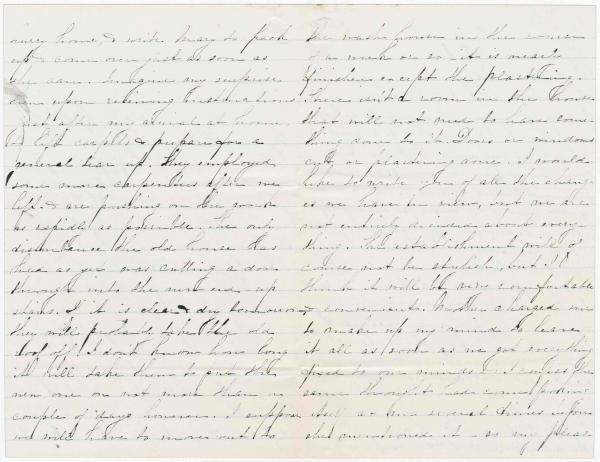 home, & write Mary to pack
up & come over just as soon as
she can. Imagine my surprise
then upon receiving instructions
just after my arrival at home
to lift carpets & prepare for a
general tear up. They employed
some more carpenters after we
left & are pushing on the work
as rapidly as possible. The only
disturbance the old house has
had as yet was cutting a door
through into the new end up
stairs. If it is clear & dry tomorrow
they will probably take the old
roof off. I don't know how long
it will take them to put the
new one on not more than a
couple of days however. I suppose
we will have to move out to
the wash house in the course
of a week or so - it is nearly
finished except the plastering.
There isn't a room in the house
that will not need to have some-
thing done to it. Doors or windows
cut or plastering done. I would
like to write you of all the chang-
es we have in view, but we are
not entirely decided about every
thing. The establishment will of
course not be stylish, but I
think it will be very comfortable
& convenient. Mother charged me
to make up my mind to leave
it all as soon as we got everything
fixed to our minds & I confess the
same thought has come
itself to me several times before
she mentioned it - so my pleas-